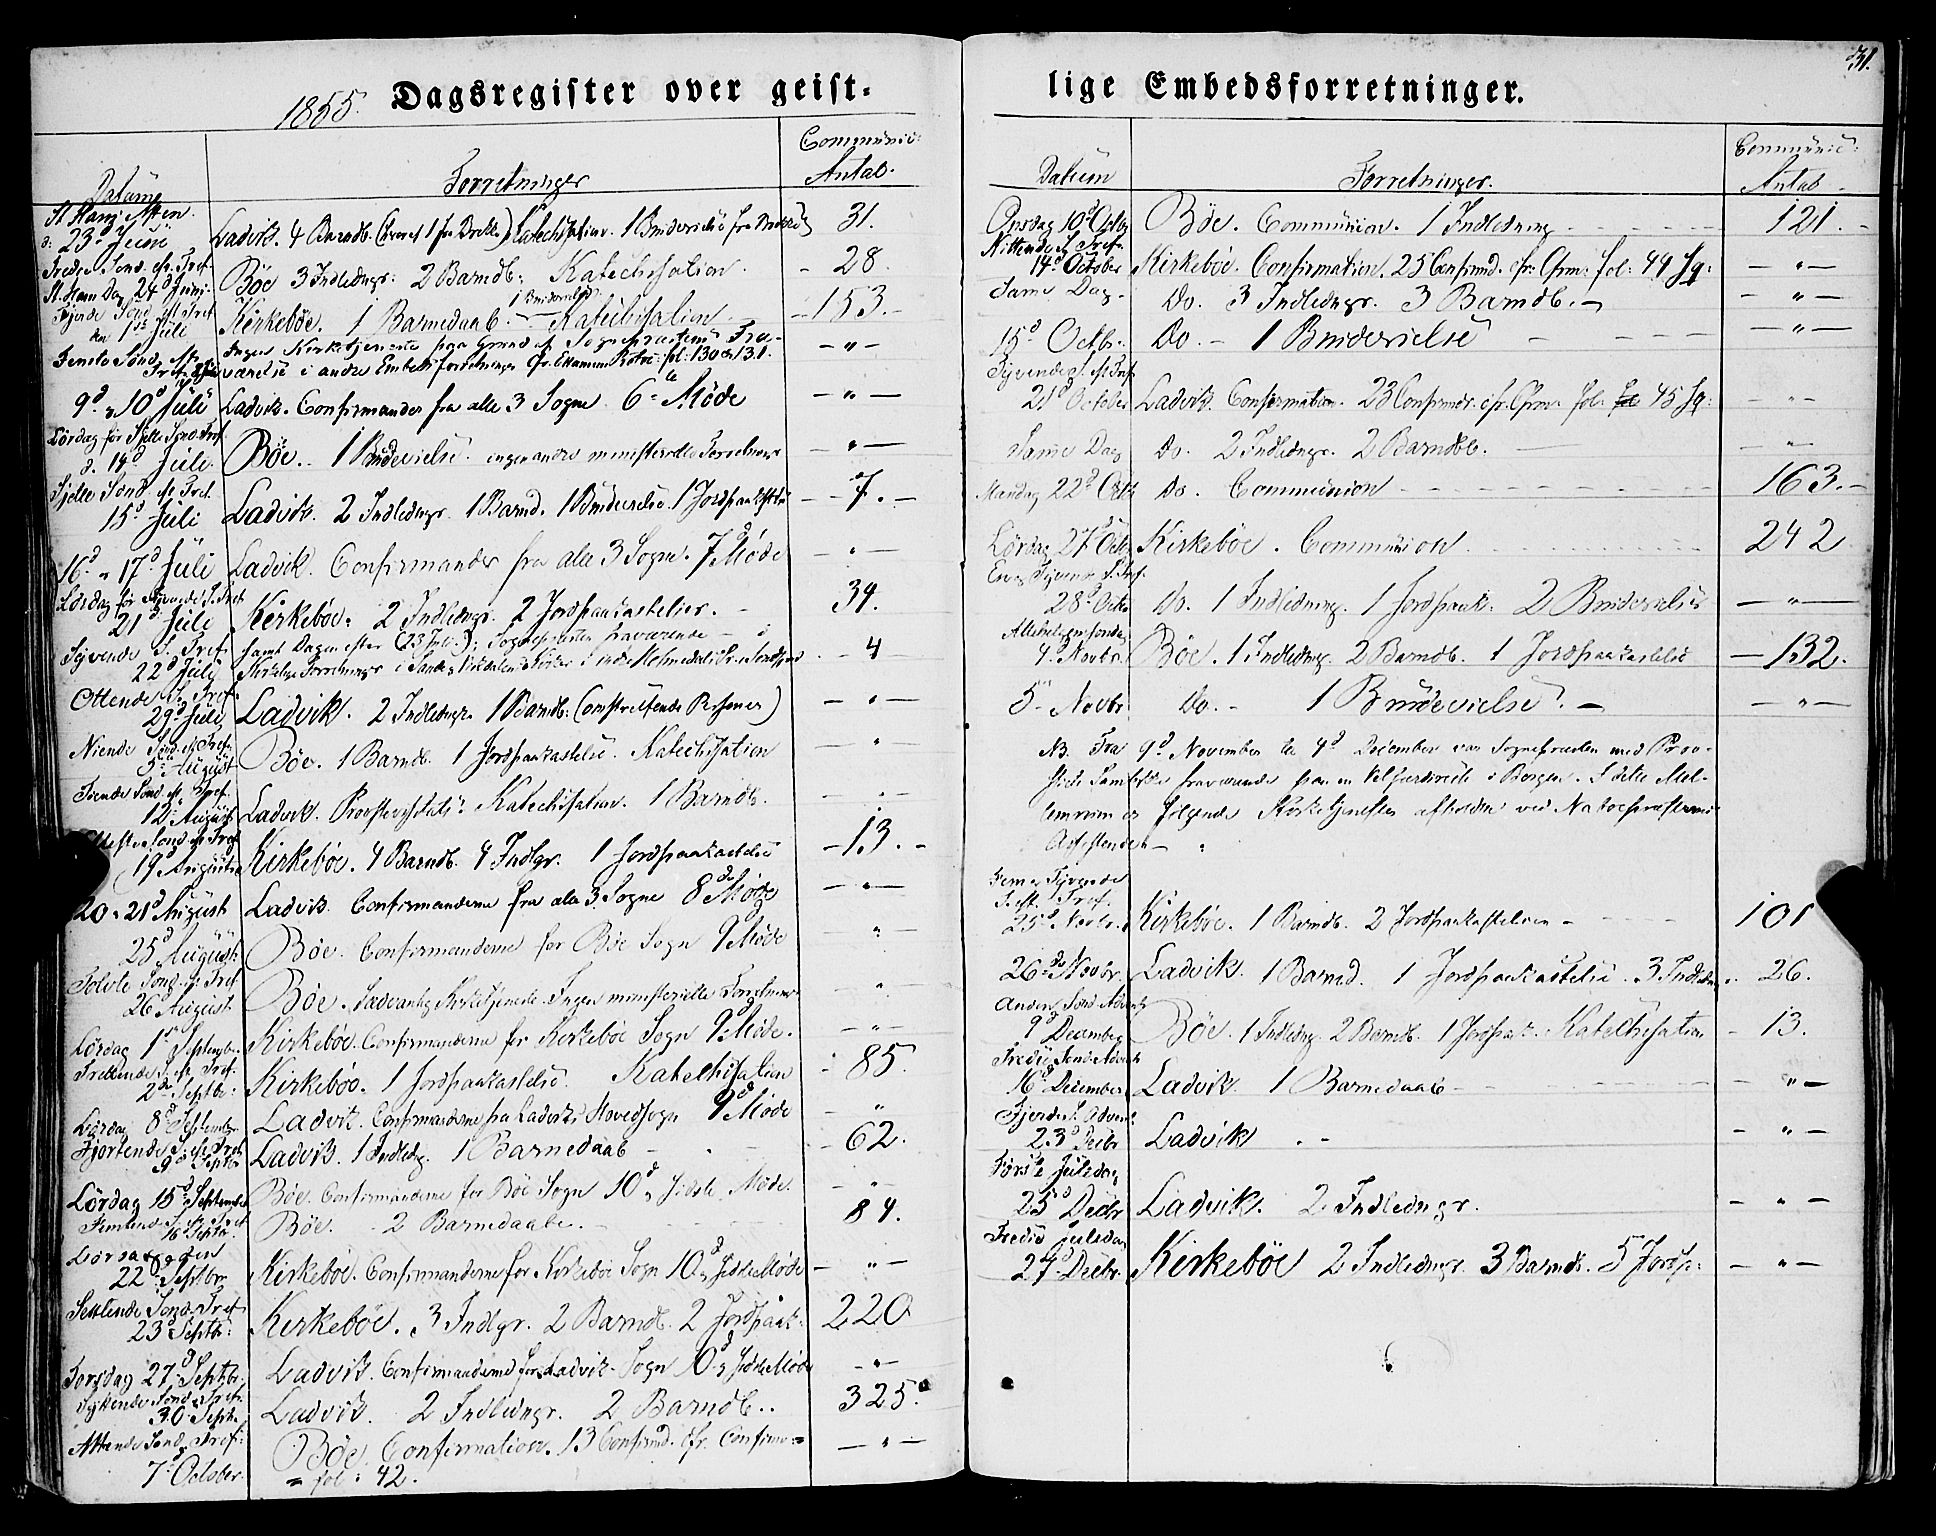 31.
1855. Dagsregister over geist-
Datum
Forretninger
Communic:
Antal.
St. Hans Aften.
d: 23d Juni Ladvik. 4 Barndb. (hvoraf 1 fra Brekke) Katechisation. 1 Brudevielse fra Brekke 31.
Tredie Sønd. ef. Tref.
St. Hans Dag 24d Juni. Bøe 3 Indledngr: 2 Barndb: Katechisation. - 28.
1 Brudevielse
Fjerde Sønd. eft. Tref
den 1ste Juli Kirkebøe. 1 Barnedaab. Katechisation - 153. -
Femte Sønd. eft. Ingen Kirketjeneste paa Grund af Sognepræstens Fra-
værelse i andre Embedsforretninger cfr. fol: 130 & 131. - " -
9d & 10d Juli Ladvik. Confirmander fra alle 3 Sogne 6te Møde - " -
Lørdag før Sjette Sønd. Tref.
d. 14d Juli. Bøe. 1 Brudevielse. ingen andre ministerielle Forretninger - " -
Sjette Sønd. ef. Tref.
15d Juli Ladvik. 2 Indledngr. 1 Barnd. 1 Brudevielse. 1 Jordpaakast - 7. -
16d & 17d Juli Ladvik. Confirmander fra alle 3 Sogne. 7d Møde - " -
Lørdag før Syvende S. Tref
21d Juli Kirkebøe. 2 Indledngr. 2 Jordpaakastelser. - 34.
Syvende S. Tref. samt Dagen efter (23 Juli): Sognepræsten fraværende
22d Juli Kirkelige Forretninger i - 4
Ottende S. Tref.
29d Juli Ladvik. 2 Indledngr. 1 Barndb: (omstreifende Personer) - " -
Niende Sønd. ef. Tref.
5te August Bøe. 1 Barndb. 1 Jordpaakastelse. Katechisation "
Tiende Sønd. ef. Tref.
12d August Ladvik. Provstevisitats. Katechisation. 1 Barndb. - " -
Ellefte Sønd. ef. Tref
19d August Kirkebøe. 4 Barndb. 4 Indlgr. 1 Jordpaakastelse - 13. -
20 & 21d August Ladvik. Confirmanderne fra alle 3 Sogne 8de Møde - " -
25d August Bøe. Confirmanderne for Bøe Sogn 9d Møde - " -
Tolvte Sønd. ef. Tref
26 August. Bøe. Sædvanlig Kirketjeneste. Ingen ministerielle Forretninger - " -
Lørdag 1ste Septembr. Kirkebøe. Confirmanderne for Kirkebøe Sogn 9d Møde. - " -
Trettende S. ef. Tref.
2den Septbr: Kirkebøe. 1 Jordpaakastelse. Katechisation - 85.
Lørdag 8d Septembr. Ladvik. Confirmanderne fra Ladviks Hovedsogn 9d Møde - " -
Fjortende S. ef. Tref
9d Septbr Ladvik. 1 Indledng. 1 Barnedaab - 62.
Lørdag 15d September Bøe. Confirmanderne for Bøe Sogn 10d & sidste Møde. - " -
Femtende S. ef. Tref
16 Septbr. Bøe. - 2 Barnedaabe. - 84.
Lørdagen
22d Septbr. Kirkebøe. Confirmanderne for Kirkebøe Sogn 10d & sidste Møde - " -
Sextende Sønd. Tref
23d Septbr: Kirkebøe. 3 Indlgr. 2 Barndb. 2 Jordpaak. 220
Torsdag 27d Septbr. Ladvik. Confirmanderne for Ladvik Sogn 10d & sidste Møde - " -
Syttende Sønd. Tref.
30 Septb. Ladvik. 2 Indledngr. 2 Barndb. 325.
Attende Sønd. Tref:
7d October. Bøe. Confirmation. 13 Confirmd. cfr. Confirm:
= fol: 42. - " -
lige Embedsforretninger.
Datum
Forretninger.
Communic:
Antal
Onsdag 10d Octbr Bøe. Communion. 1 Indledning - 121. -
Nittende S. Tref.
14d October Kirkebøe. Confirmation. 25 Confirmd. cfr. Cfrm: fol: 44 sq: - " -
Same Dag. Do. 3 Indledngr. 3 Barndb. - - " -
15d Octbr. Do. - 1 Brudevielse - " -
Tyvende S. eft. Tref
21d October Ladvik. Confirmation. 23 Confirmdr. cfr. Cfrm. fol. 45 sq: - " -
Samme Dag Do. 2 Indledngr. 2 Barndb. - " -
Mandag 22d Octb Do. Communion 163. -
Lørdag 27d Octb. Kirkebøe. Communion 242
En & Tyvende S. Tref.
28d Octb. Do. 1 Indledning. 1 Jordpaak: 2 Brudevielser - " -
Allehelgensønd.
4 Novbr. Bøe. 1 Indledng. 2 Barndb. 1 Jordpaakastelse - 132.
5 Novbr. Do. - 1 Brudevielse. - - " -
NB. Fra 9d November til 4d December var Sognepræsten med Prov-
stiets Samtykke fraværende paa en Velfærdsreise i Bergen. I dette Mel-
lemrum er følgende Kirketjenester afholdne ved Nabopræsternes
Assistence -
Fem & Tyvende
S. eft. Tref.
25d Novbr. Kirkebøe. 1 Barndb. 2 Jordpaakastelser - 101
26de Novbr. Ladvik. 1 Barnd. 1 Jordpaakastelse. 3 Indledn. 26.
Anden Sønd. Advent
9d December Bøe. 1 Indledng. 2 Barndb. 1 Jordpaak. Katechisation - 13.
Tredie Sønd. Advent
16d December Ladvik. 1 Barnedaab - " -
Fjerde S. Advent
23d Decbr Ladvik - " -
Første Juledag
25d Decbr Ladvik. 2 Indledngr. - " -
Tredie Juledag
27d Decbr. Kirkebøe 2 Indledngr. 3 Barndb. 5 Jordp: - " -